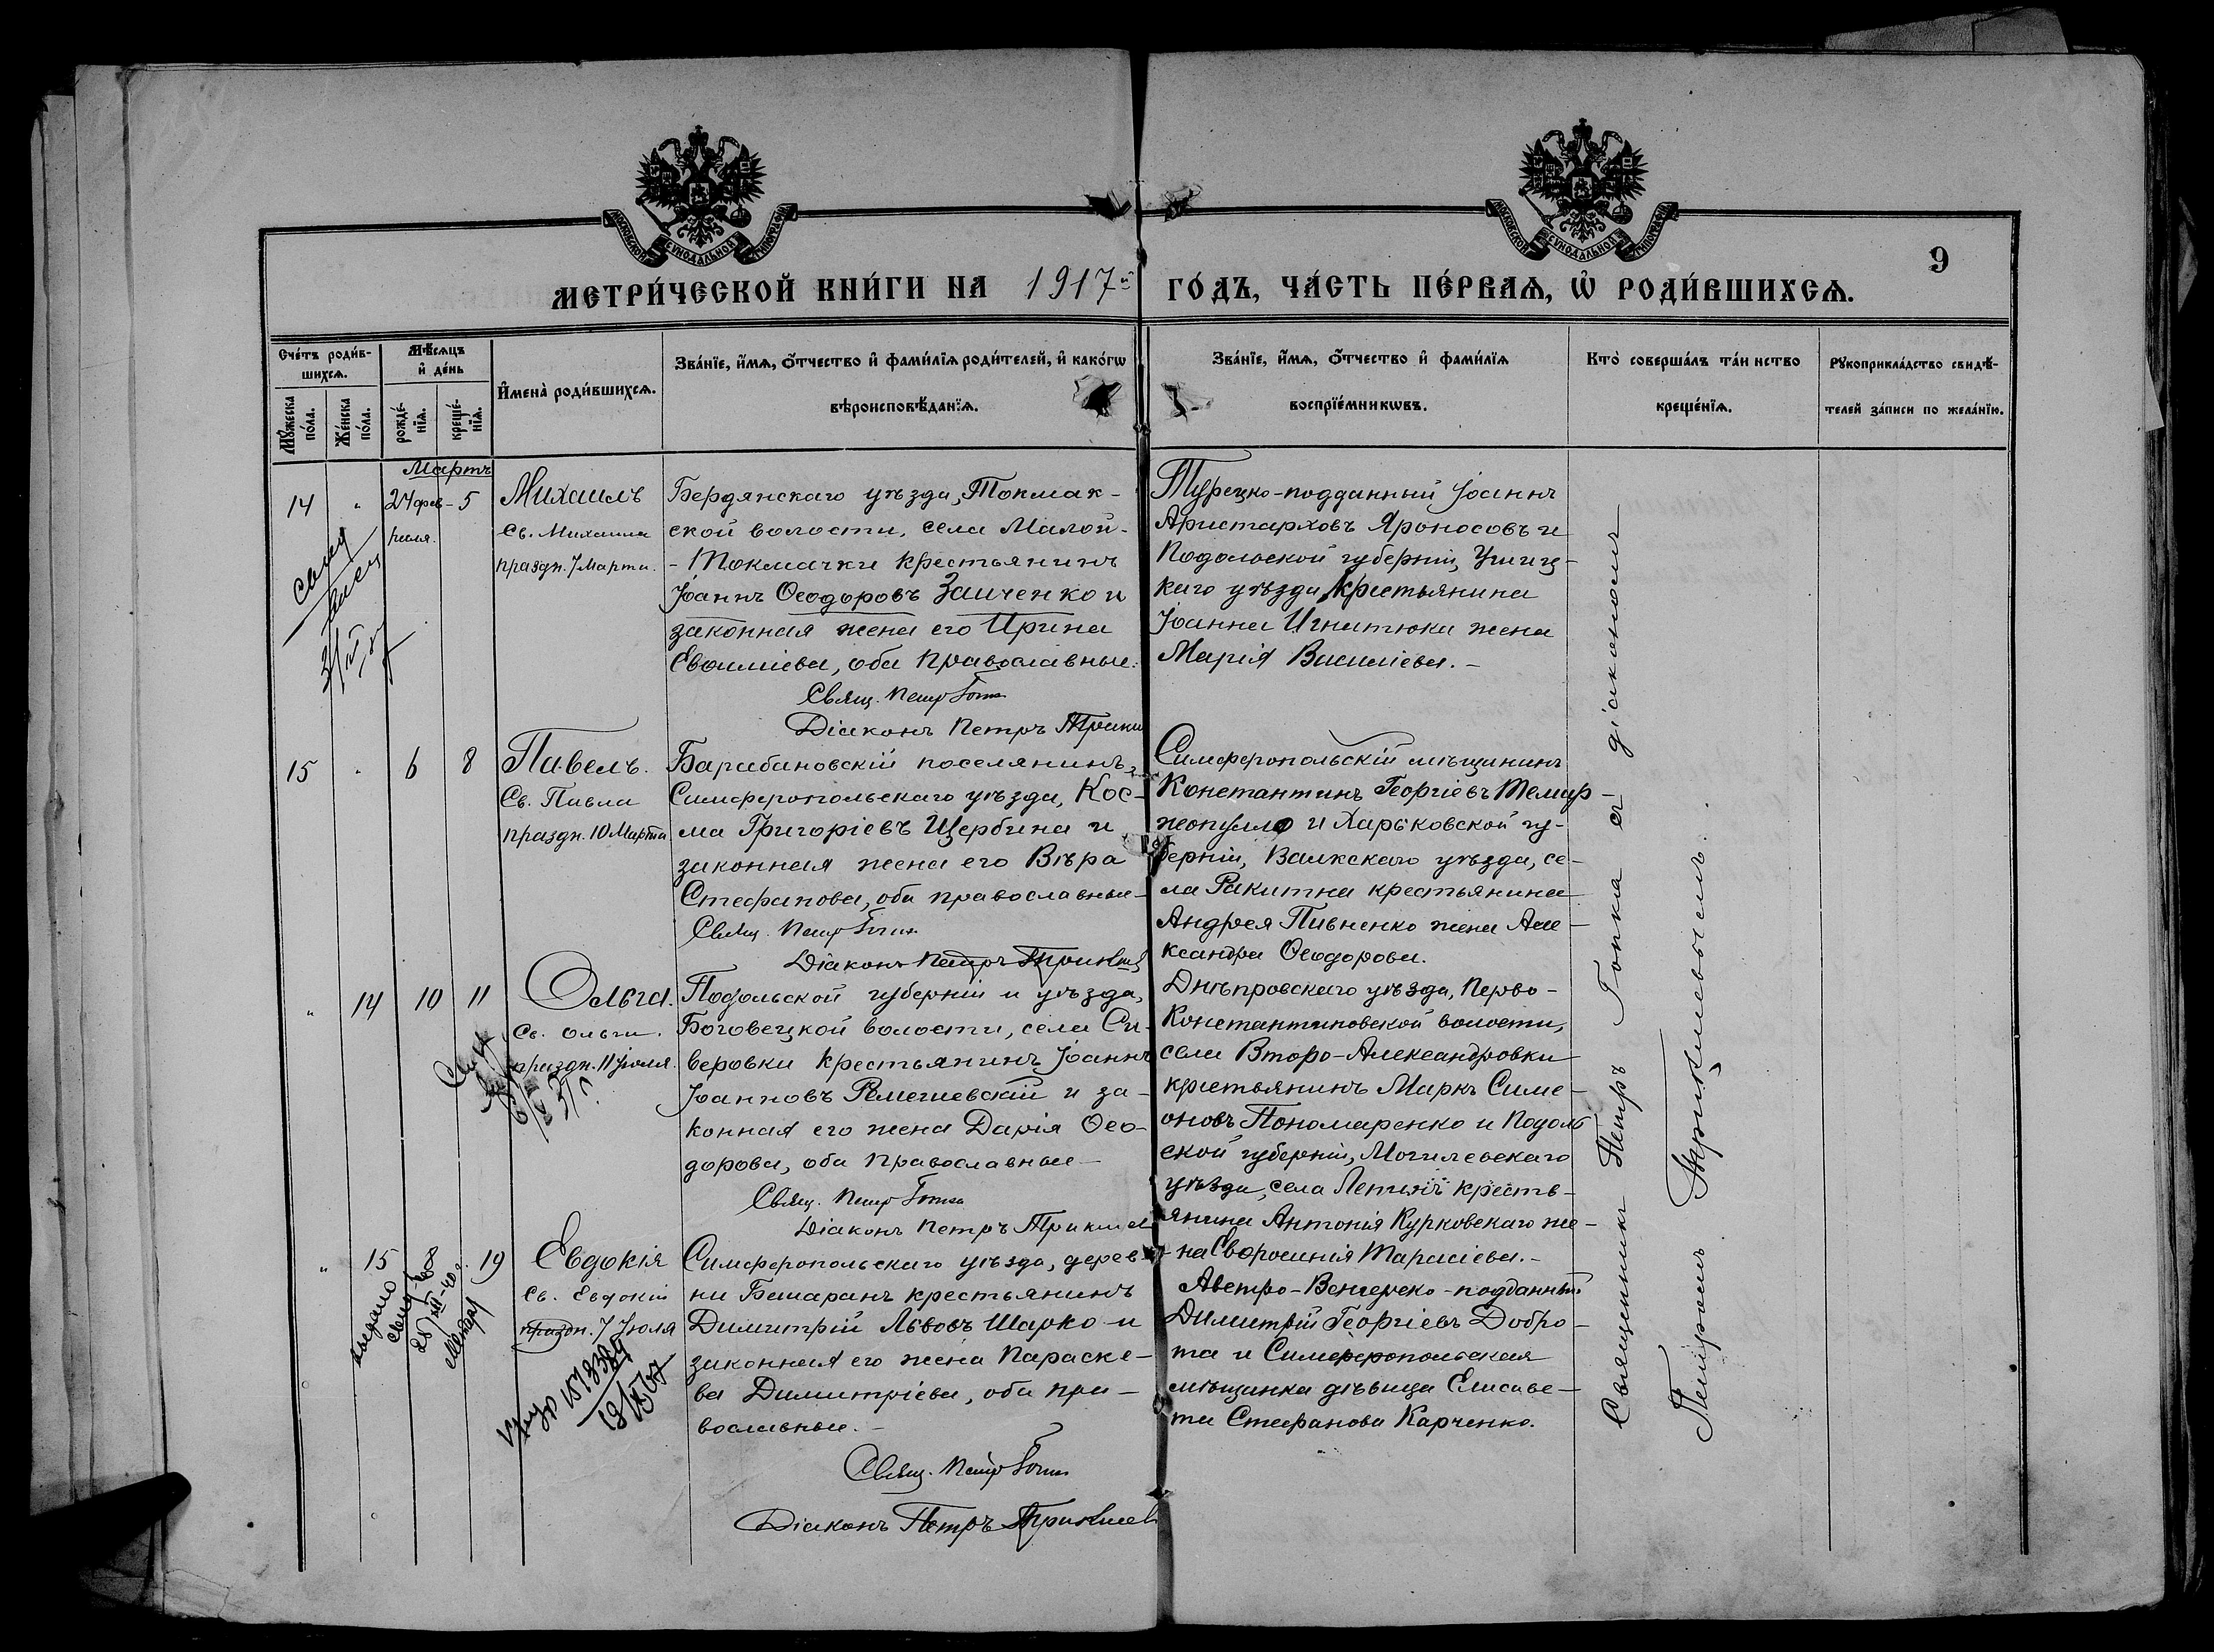 МОСКОВСКОЙ СѴНОДАЛЬНОЙ ТИПОГРАФІИ
МОСКОВСКОЙ СѴНОДАЛЬНОЙ ТИПОГРАФІИ
9
МЕТРИ́ЧЕСКОЙ КНИ́ГИ НА 1917й ГО́ДЪ, ЧА́СТЬ ПЕ́РВАѦ, Ѡ҆ РОДИ́ВШИХСѦ.
Сче́тъ роди́в-
шихсѧ.
Мꙋ́жеска по́ла.
Же́нска по́ла.
Мѣ́сѧцъ и҆ де́нь
рожде́-
нїѧ.
креще́-
нїѧ.
И҆мена̀ роди́вшихсѧ.
Зва́нїе, и҆́мѧ, ѻ҆́тчество и҆ фами́лїѧ роди́телей, и҆ како́гѡ
вѣроисповѣ́данїѧ.
Зва́нїе, и҆́мѧ, ѻ҆́тчество и҆ фами́лїѧ
воспрїе́мникѡвъ.
Кто̀ соверша́лъ та́инство
креще́нїѧ.
Рꙋкоприкла́дство свидѣ́-
телей за́писи по жела́нїю.
Мартъ
14 " 24 фев- 5
раля.
Михаилъ
Св. Михаила
праздн. 7 Марта.
Бердянскаго уѣзда, Токмак-
ской волости, села Малой-
- Токмачки крестьянинъ
Іоаннъ Ѳеодоровъ Заиченко и
законная жена его Ирина
Евѳиміева, оба православные.
Свящ. Петр Гопка
Діаконъ Петръ
Турецко-подданный Іоаннъ
Аристарховъ Яроносовъ и
Подольской губерніи, Ушиц-
каго уѣзда, крестьянина
Іоанна Игнатюка жена
Марія Василіева.-
15 " 6 8
Павелъ.
Св. Павла
праздн. 10 Марта
Барабановскій поселянинъ,
Симферопольскаго уѣзда, Кос-
ма Григоріевъ Щербина и
законная жена его Вѣра
Стефанова, оба православные-
Свящ. Петр Гопка
Діаконъ Петръ
Симферопольскій мѣщанинъ
Константинъ Георгіевъ Темир-
жопулло и Харьковской гу-
берніи, Валкскаго уѣзда, се-
ла Ракитна крестьянина
Андрея Пивненко жена Але-
ксандра Ѳеодорова.
" 14 10 11
Ольга.
Св. Ольги.
праздн. 11 Іюля.
Подольской губерніи и уѣзда,
Боговецкой волости, села Си-
веровки крестьянинъ Іоаннъ
Іоанновъ Ремегиевскій и за-
конная его жена Дарія Ѳео-
дорова, оба православные-
Свящ. Петр Гопка
Діаконъ Петръ
Днѣпровскаго уѣзда, Перво-
Константиновской волости,
села Второ-Александровки
крестьянинъ Маркъ Симе-
оновъ Пономаренко и Подоль
ской губерніи, Могилевскаго
уѣзда, села крестъ-
янина Антонія Курковскаго же-
на Евфросинія Тарасіева.-
" 15 8 19
Евдокія
Св. Евдокіи
праздн. 7 Іюля
выдано
свид-во
28/XII-40 г.
Симферопольскаго уѣзда, дерев-
ни Бешаранъ крестьянинъ
Димитрій Львовъ Шарко и
законная его жена Параске-
ва Димитріева, оба пра-
вославные.-
Свящ. Петр Гопка
Діаконъ Петръ
Австро-Венгерско-подданный
Димитрій Георгіевъ Добро-
та и Симферопольская
мѣщанка дѣвица Елисаве-
та Стефанова Карченко.
Священникъ Петръ Гопка съ діакономъ
Петромъ